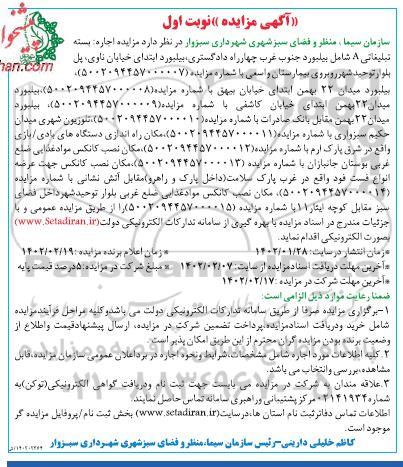 «آگهی مزایده» نوبت اول
سازمان سیما ، منظر و فضای سبزشهری شهرداری سبزوار در نظر دارد مزایده اجاره: بسته
تبلیغاتی A شامل بیلبورد جنوب غرب چهارراه دادگستری،بیلبورد ابتدای خیابان ناوی، پل
بلوارتوحیدشهرروبروی بیمارستان واسعی با شماره مزایده (۵۰۰۲۰۹۴۴۵۷۰۰۰۰۰۷)،
بیلبورد میدان ۲۲ بهمن ابتدای خیابان بیهق با شماره مزایده (۵۰۰۲۰۹۴۴۵۷۰۰۰۰۰۸)،بیلبورد
میدان۲۲بهمن ابتدای خیابان کاشفی با شماره مزایده(۵۰۰۲۰۹۴۴۵۷۰۰۰۰۰۹)، بیلبورد
میدان۲۲بهمن مقابل بانک صادرات با شماره مزایده(۵۰۰۲۰۹۴۴۵۷۰۰۰۰۱۰)،تلوزیون شهری میدان
حکیم سبزواری با شماره مزایده(۵۰۰۲۰۹۴۴۵۷۰۰۰۰۱۱)،مکان راه اندازی دستگاه های بادی/بازی
واقع در شرق پارک ارم با شماره مزایده(۵۰۰۲۰۹۴۴۵۷۰۰۰۰۱۲)،مکان نصب کانکس موادغذایی ضلع
غربی بوستان جانبازان با شماره مزایده (۵۰۰۲۰۹۴۴۵۷۰۰۰۰۱۳)،مکان نصب کانکس جهت عرضه
انواع فست فود واقع در غرب پارک سلامت(داخل پارک و راهرو)مقابل آتش نشانی با شماره مزایده
(۵۰۰۲۰۹۴۴۵۷۰۰۰۰۱۴)، مکان نصب کانکس موادغذایی ضلع غربی بلوار توحیدشهرداخل فضای
سبز مقابل کوچه ایثار۱۱با شماره مزایده (۵۰۰۲۰۹۴۴۵۷۰۰۰۰۱۵)را از طریق مزایده عمومی و با
جزئیات مندرج در اسناد مزایده با بهره گیری از سامانه تدارکات الکترونیکی دولت(www.Setadiran.ir)
بصورت الکترونیکی اقدام نماید.
*زمان انتشار در سایت: ۱۴۰۲/۰۱/۲۸ *زمان اعلام برنده مزایده : ۱۴۰۲/۰۲/۱۹
*آخرین مهلت دریافت اسنادمزایده از سایت: ۱۴۰۲/۰۲/۰۷ *مبلغ شرکت در مزایده: ۵درصد قیمت پایه
*آخرین مهلت شرکت در مزایده : ۱۴۰۲/۰۲/۱۷
ضمنا رعایت موارد ذیل الزامی است:
۱-برگزاری مزایده صرفا از طریق سامانه تدارکات الکترونیکی دولت می باشدوکلیه مراحل فرآیندمزایده
شامل خرید ودریافت اسنادمزایده،پرداخت تضمین شرکت در مزایده، ارسال پیشنهادقیمت واطلاع از
وضعیت برنده بودن مزایده گران محترم از این طریق امکان پذیر است.
۲.کلیه اطلاعات مورد اجاره شامل مشخصات،شرایط ونحوه اجاره در برداعلان عمومی سازمان مزایده،قابل
مشاهده،بررسی وانتخاب می باشد.
۳.علاقه مندان به شرکت در مزایده می بایست جهت ثبت نام ودریافت گواهی الکترونیکی(توکن)به
شماره۰۲۱۴۱۹۳۴مرکز پشتیبانی وراهبری سامانه تماس حاصل نمایند.
اطلاعات تماس دفاترثبت نام استان ها،درسایت(www.setadiran.ir) بخش ثبت نام/پروفایل مزایده گر
موجود است.
کاظم خلیلی دارینی-رئیس سازمان سیما،منظرو فضای سبزشهری شهرداری سبزوار